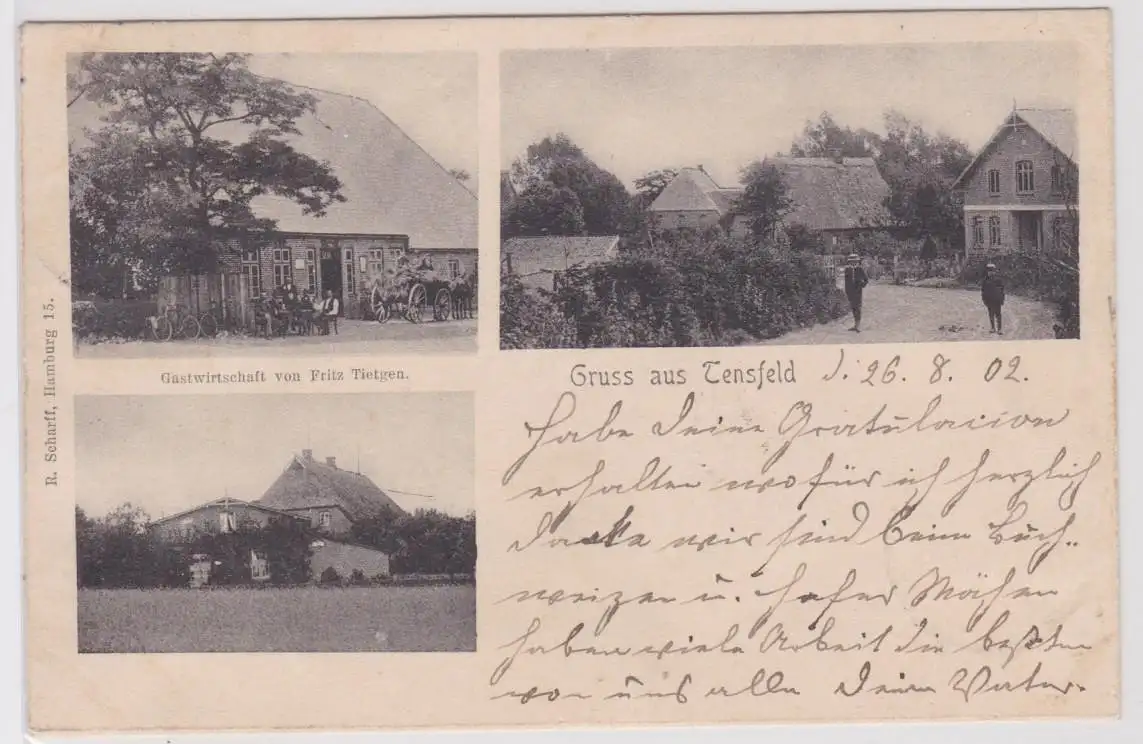 Gastwirtschaft von Fritz Tietgen.
R. Scharff, Hamburg 15.
Gruss aus Tensfeld d. 26. 8. 02.
Habe Deine Gratulacion
erhalten wofür ich herzlich
danke wir sind beim Buch-
weizen u. Hafer Mähen
haben viele Arbeit die besten
von uns alle Dein Vater.